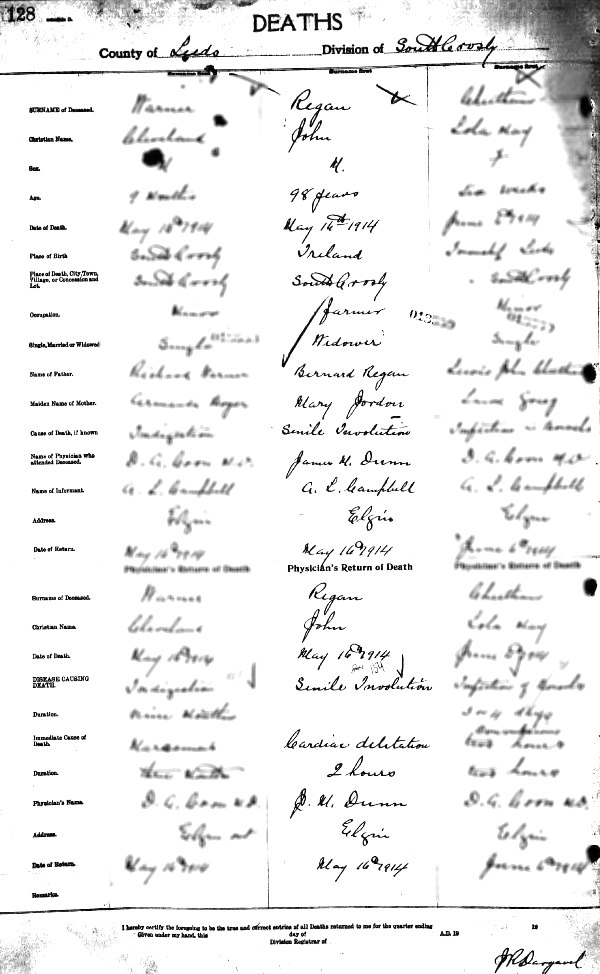 128
DEATHS
County of Leeds Division of South Crosby
Surname first
SURNAME of Deceased. Warner Regan
Christian Name. Cleveland John Lola May
Sex. M M. F
Age. 9 Months 98 years two weeks
Date of Death. May 16th 1914 May 16th 1914 June 5th 1914
Place of Birth South Crosby Ireland Township Leeds
Place of Death, City, Town, Village, or Concession and Lot. South Crosby South Crosby South Crosby
Occupation. Minor farmer Minor
Single, Married or Widowed Single Widower Single
Name of Father. Richard Warner Bernard Regan Lewis John
Maiden Name of Mother. Mary Jordon
Cause of Death, if known Indigestion Senile Involution Infection
Name of Physician who attended Deceased. D. A. Coon M.D. James M. Dunn D. A. Coon M.D.
Name of Informant. A. L. Campbell A. L. Campbell A. L. Campbell
Address. Elgin Elgin Elgin
Date of Return. May 16th 1914 May 16th 1914 June 6th 1914
Physician's Return of Death Physician's Return of Death Physician's Return of Death
Surname of Deceased. Warner Regan
Christian Name. Cleveland John Lola May
Date of Death. May 16th 1914 May 16th 1914 June 5th 1914
DISEASE CAUSING DEATH. Indigestion Senile Involution Infection of
Duration. nine Months 3 or 4 days
Immediate Cause of Death. Marasmus Cardiac dilitation
Duration. 2 hours two hours
Physician's Name. D. A. Coon M.D. J. M. Dunn D. A. Coon M.D.
Address. Elgin ont Elgin Elgin
Date of Return. May 16th 1914 May 16th 1914 June 6th 1914
Remarks.
I hereby certify the foregoing to be the true and correct entries of all Deaths returned to me for the quarter ending 19
Given under my hand, this day of A.D. 19
Division Registrar of